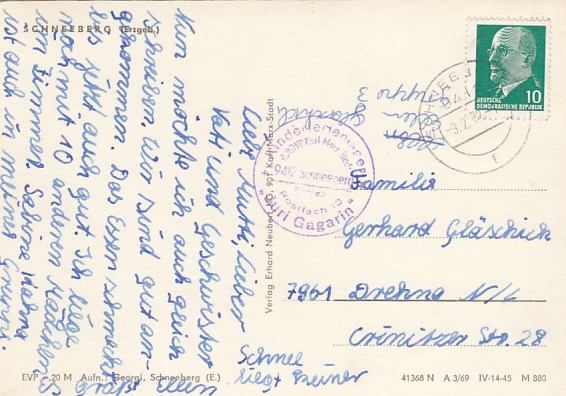 SCHNEEBERG (Erzgeb.)
Liebe Mutti, Lieber
Vati und Geschwister
Nun möchte ich auch gleich
schreiben. Wir sind gut an-
gekommen. Das Essen schmeckt
bis jetzt auch gut. Ich liege
noch mit 10 anderen Mädchen
im Zimmer. Sabine
ist auch in meiner Gruppe.
Schnee
liegt keiner
Verlag Erhard Neubert KG, 901 Karl-Marx-Stadt
EVP -.20 M Aufn.: Georgi, Schneeberg (E.)
Gruppe 3
"Juri Gagarin"
Postfach 15
DEUTSCHE
DEMOKRATISCHE REPUBLIK
10
Familie
Gerhard Gläschick
7961 Drehna N/L
Crinitzer Str. 28
41368 N A 3/69 IV-14-45 M 880